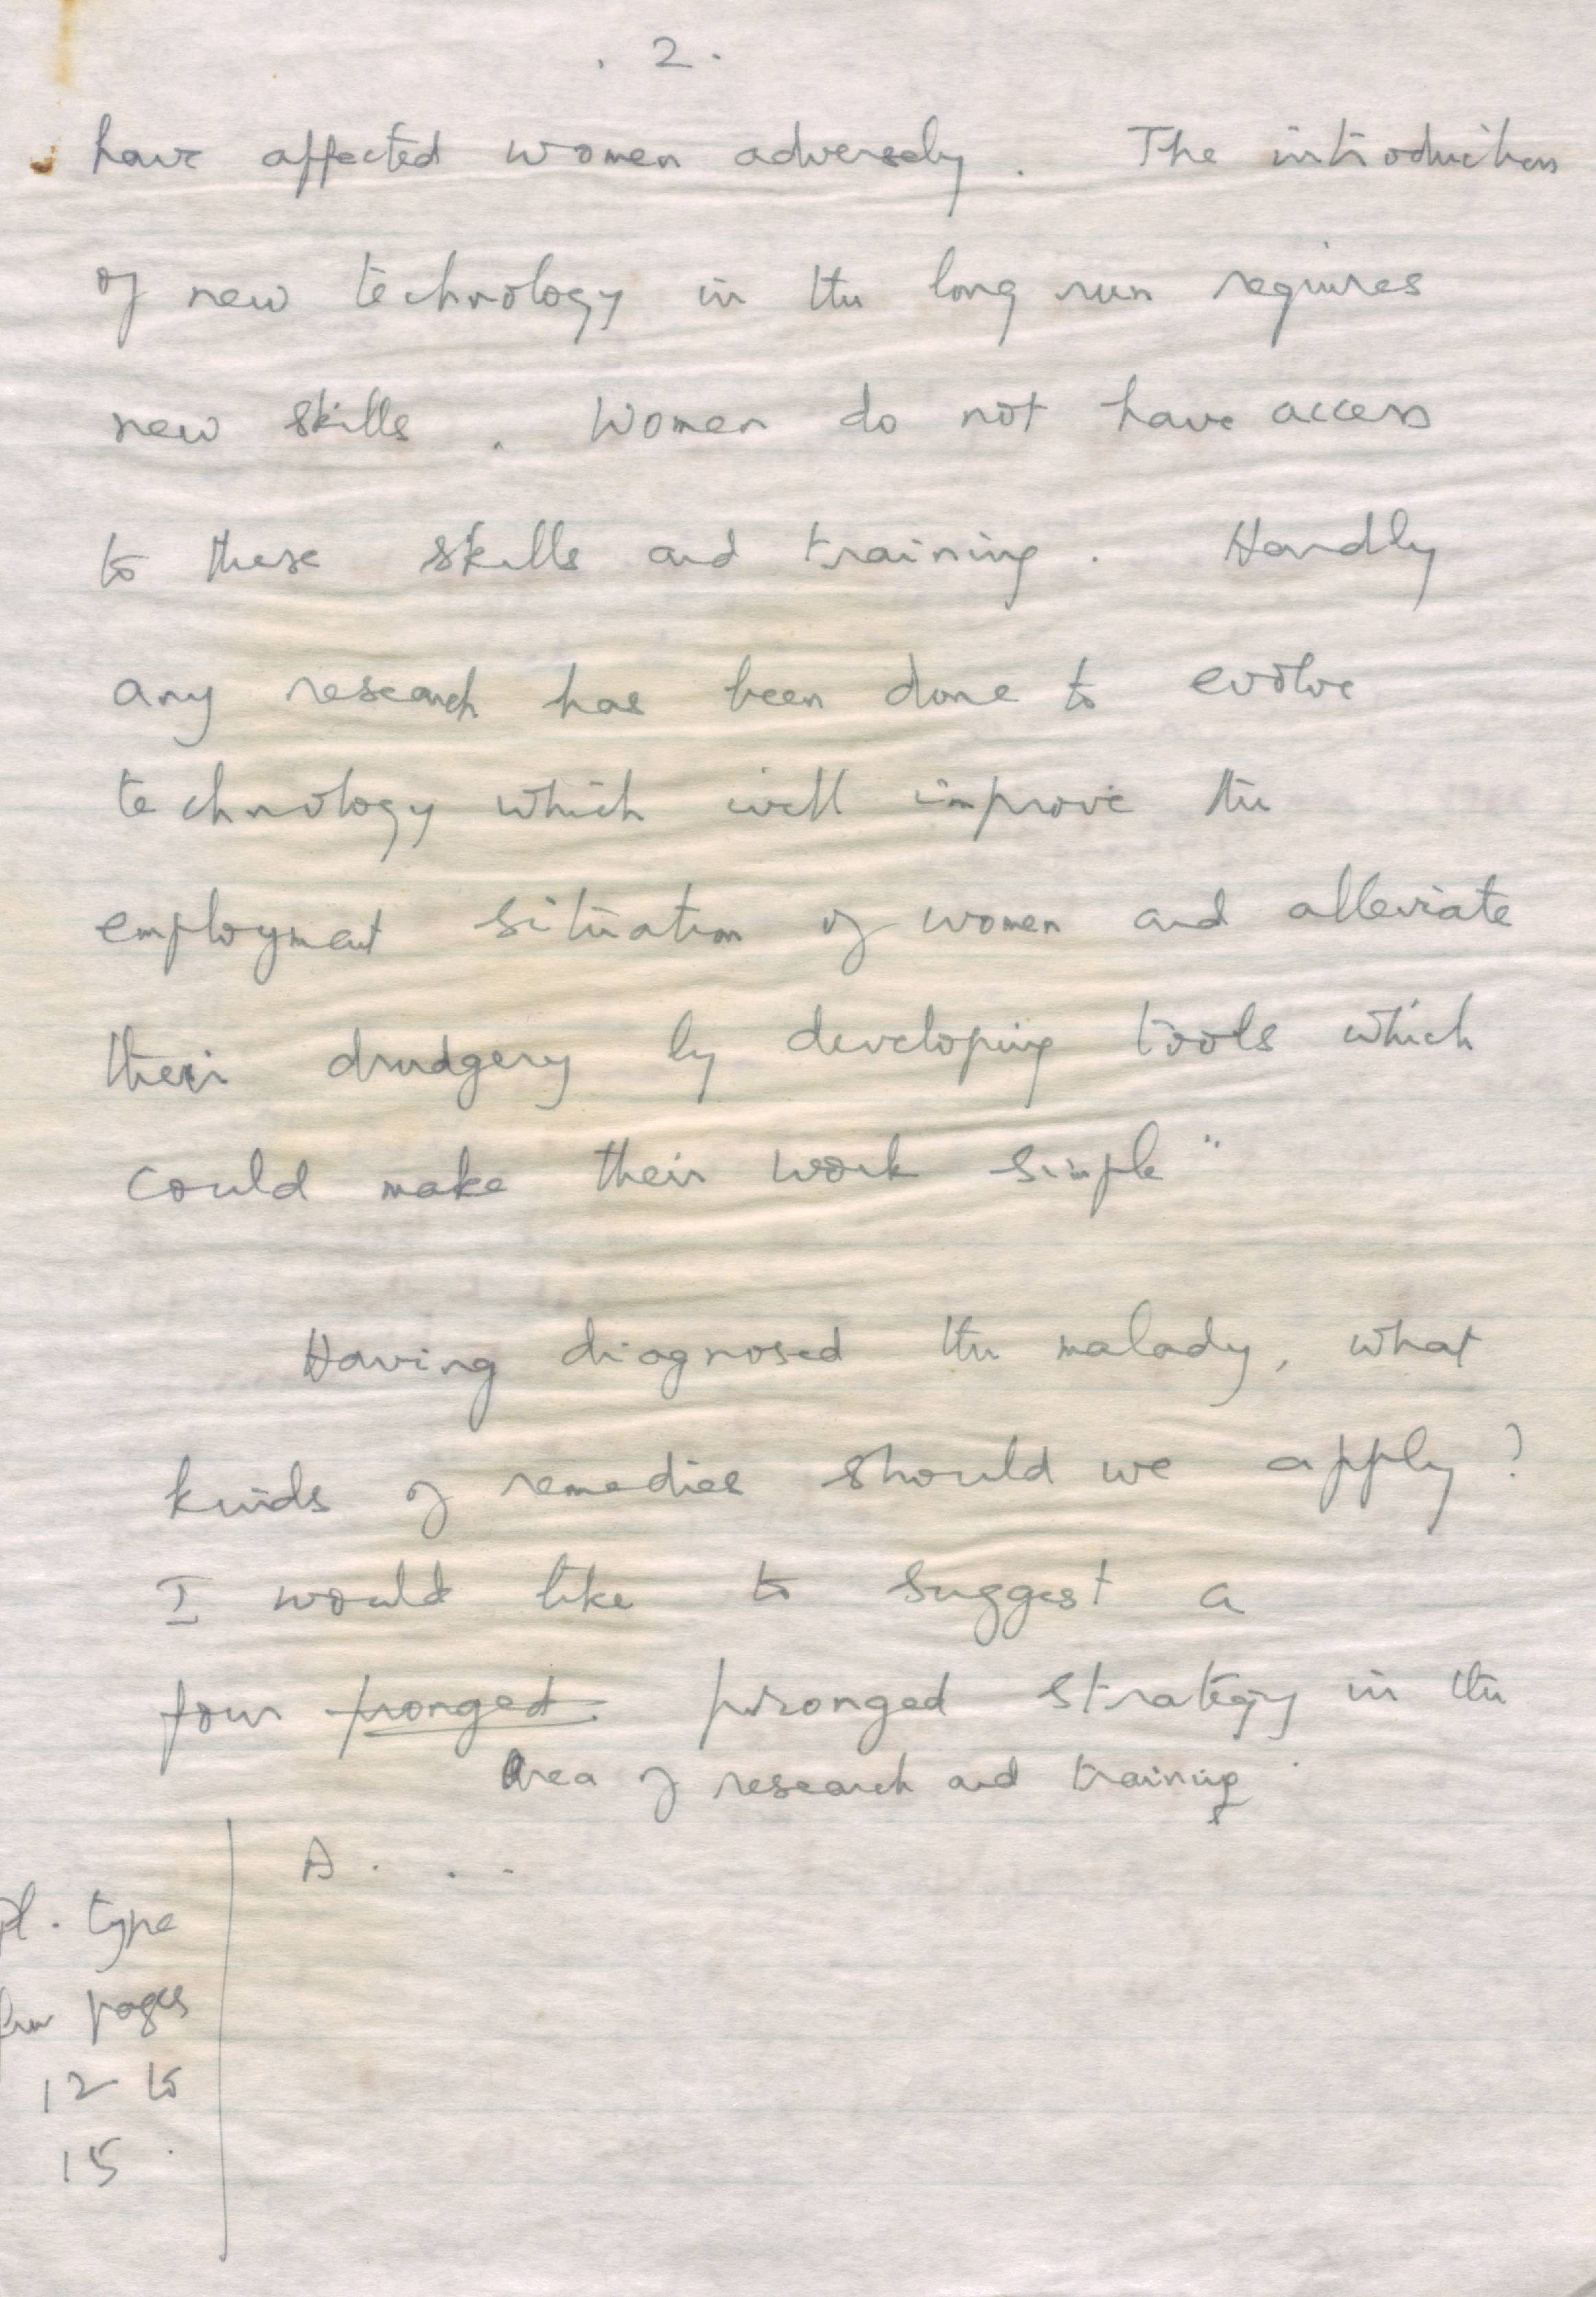 . 2 .
have affected women adversely. The introduction
of new technology in the long run requires
new skills. Women do not have access
to these skills and training. Hardly
any research has been done to evolve
technology which will improve the
employment situation of women and alleviate
their drudgery by developing tools which
could make their work simple"
Having diagnosed the malady, what
kinds of remedies should we apply?
I would like to suggest a
four pronged pronged strategy in the
area of research and training.
A. . .
type
pages
12 to
15.